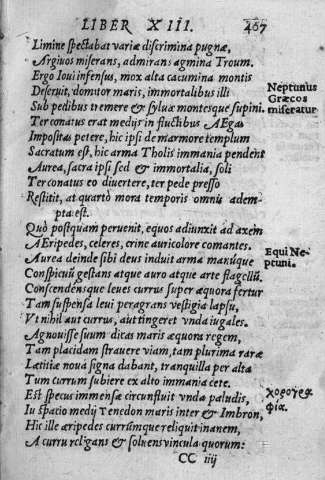 LIBER XIII. 467
Limine spectabat variæ discrimina pugnæ,
Argiuos miserans, admirans agmina Troum.
Ergo Ioui infensus, mox alta cacumina montis
Deseruit, domitor maris, immortalibus illi
Sub pedibus tremere & syluæ montesque supini.
Neptunus
Græcos
miseratur
Ter conatus erat medijs in fluctibus Ægas
Impositas petere, hic ipsi de marmore templum
Sacratum est, hic arma Tholis immania pendent
Aurea, sacra ipsi sed & immortalia, soli
Ter conatus eo diuertere, ter pede presso
Restitit, at quartò mora temporis omnis adem-
pta est.
Quò postquam peruenit, equos adiunxit ad axem
Æripedes, celeres, crine auricolore comantes.
Equi Ne-
ptuni.
Aurea deinde sibi deus induit arma manúque
Conspicuũ gestans atque auro atque arte flagellũ.
Conscendensque leues currus super æquora fertur
Tam suspensa leui peragrans vestigia lapsu,
Vt nihil aut currus, aut tingeret vnda iugales.
Agnouisse suum dicas maris æquora regem,
Tam placidam strauere viam, tam plurima raræ
Lætitiæ noua signa dabant, tranquilla per alta
Tum currum subiere ex alto immania cete.
Est specus immensæ circunfluit vnda paludis,
χορογρα
φία.
In spatio medij Tenedon maris inter & Imbron,
Hic ille æripedes currúmque reliquit inanem,
A curru religans & soluens vincula quorum:
CC iiij